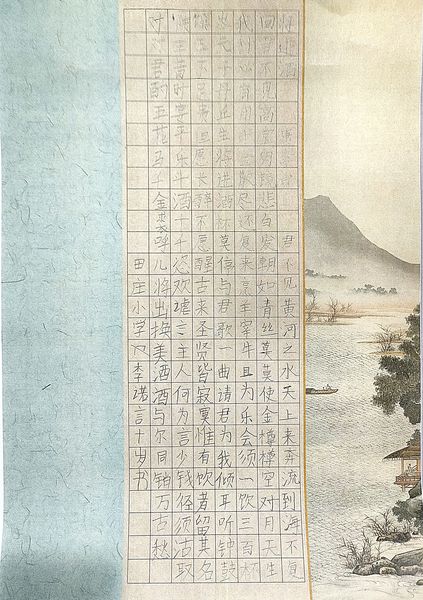 将进酒 君不见黄河之水天上来奔流到海不复
回君不见高堂明镜悲白发朝如青丝莫莫使金樽樽空对月天生
我材必有用千金散尽还复来烹羊宰牛且为乐会须一饮三百杯
夫子丹丘生将进酒杯莫停与君歌一曲请君为我倾耳听钟鼓
馔玉不足贵但愿长醉不愿醒古来圣贤皆寂寞惟有饮者留其名
陈王昔时宴平乐斗酒十千恣欢谑言主人何为言少钱径须沽取
对君酌五花马千金裘呼儿将出换美酒酒与尔同销万古愁
田庄小学李诺言十岁书